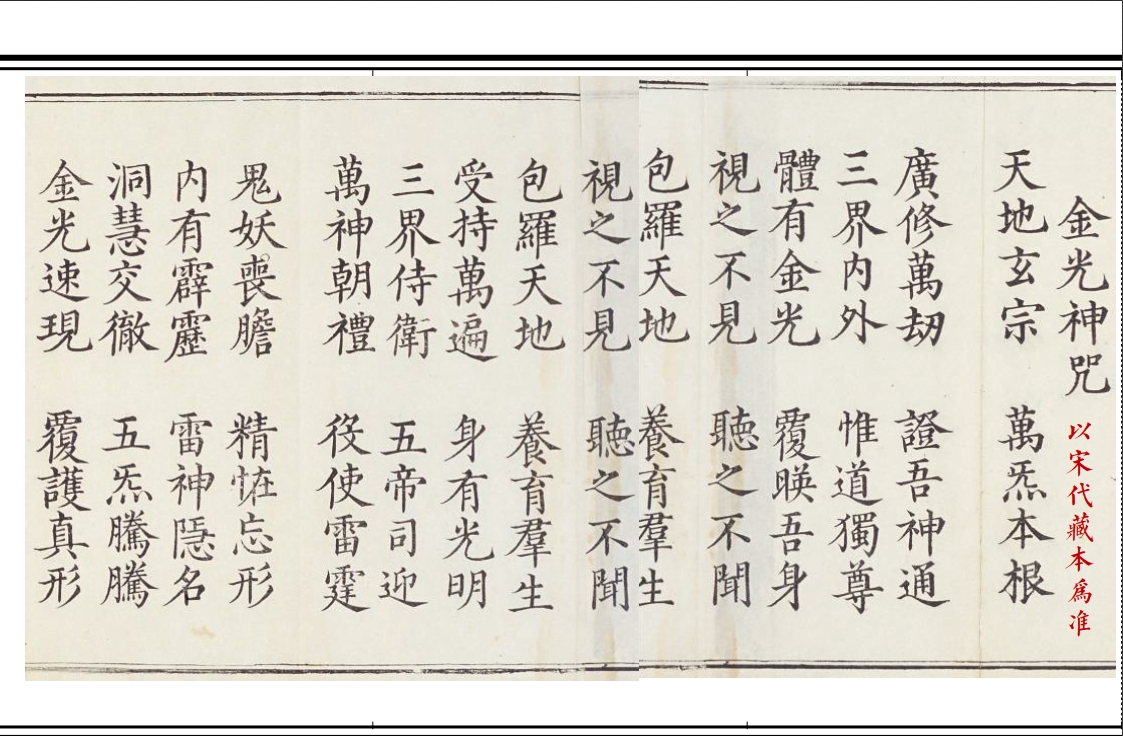 金光神咒 以宋代藏本爲准
天地玄宗 萬炁本根
廣修萬刼 證吾神通
三界内外 惟道獨尊
體有金光 覆暎吾身
視之不見 聽之不聞
包羅天地 養育羣生
視之不見 聽之不聞
包羅天地 養育羣生
受持萬遍 身有光明
三界侍衛 五帝司迎
萬神朝禮 役使雷霆
鬼妖喪膽 精恠忘形
内有霹靂 雷神隠名
洞慧交徹 五炁騰騰
金光速現 覆護真形